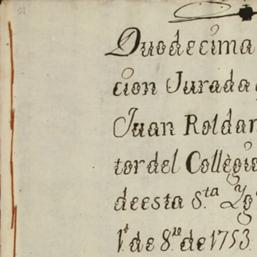 Duodecima
cion Jurada
Juan Roldan
tor del Collegio
de esta S.ta Yg
1.º de 8.re de 1753.